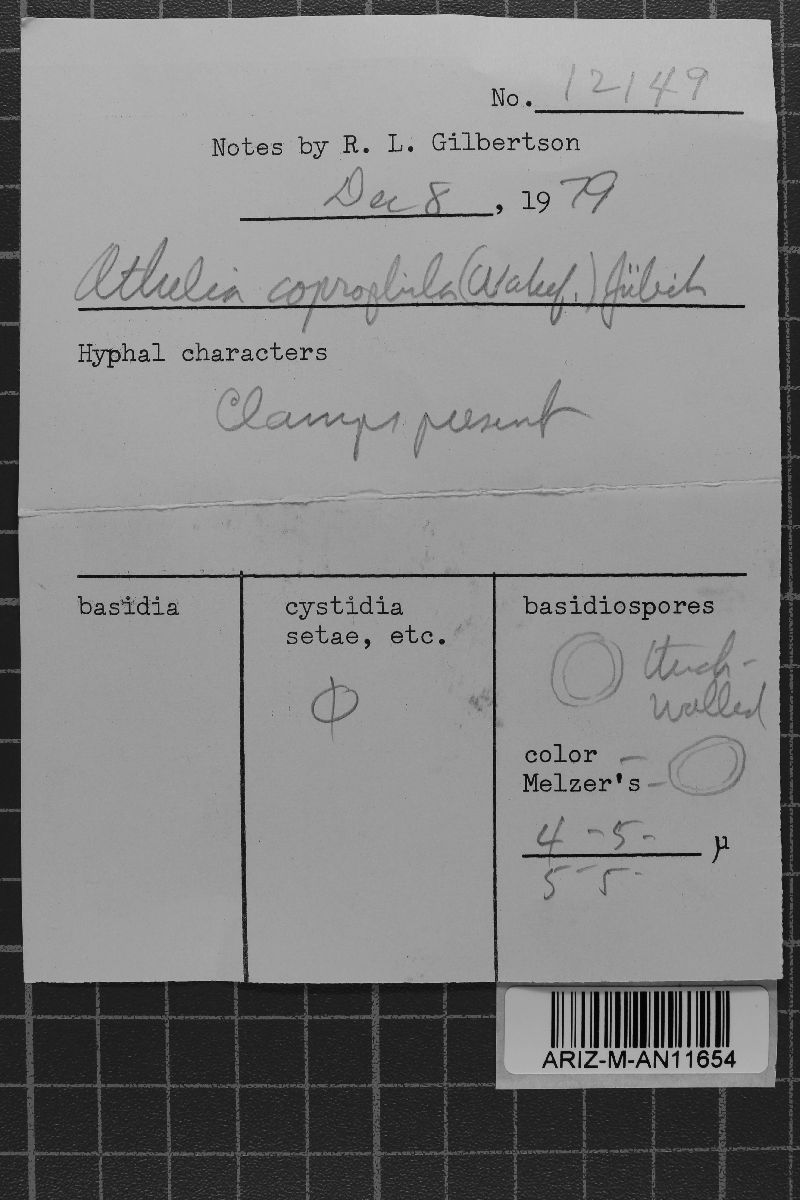 No. 12149
Notes by R. L. Gilbertson
Dec 8, 1979
Athelia coprophila (Wakef.) Jülich
Hyphal characters
Clamps present
basidia
cystidia
setae, etc.
basidiospores
thick-
walled
color —
Melzer's —
4 - 5 - µ
5 - 5 -
ARIZ-M-AN11654